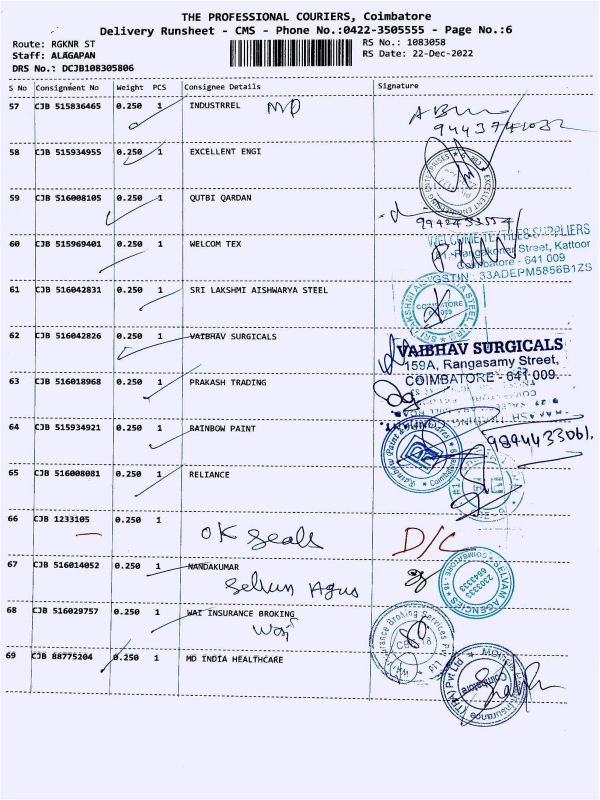 THE PROFESSIONAL COURIERS, Coimbatore
Delivery Runsheet - CMS - Phone No.:0422-3505555 - Page No.:6
Route: RGKNR ST
RS No.: 1083058
Staff: ALAGAPAN
RS Date: 22-Dec-2022
DRS No.: DCJB108305806
S No Consignment No Weight PCS Consignee Details Signature
57 CJB 515836465 0.250 1 INDUSTRREL MD
58 CJB 515934955 0.250 1 EXCELLENT ENGI
59 CJB 516008105 0.250 1 QUTBI QARDAN
60 CJB 515969401 0.250 1 WELCOM TEX
WELCOME TEXTILES SUPPLIERS
Street, Kattoor
Coimbatore - 641 009
GSTIN : 33ADEPM5856B1ZS
61 CJB 516042831 0.250 1 SRI LAKSHMI AISHWARYA STEEL
62 CJB 516042826 0.250 1 VAIBHAV SURGICALS
VAIBHAV SURGICALS
159A, Rangasamy Street,
COIMBATORE - 641 009.
63 CJB 516018968 0.250 1 PRAKASH TRADING
64 CJB 515934921 0.250 1 RAINBOW PAINT
9894433061.
65 CJB 516008081 0.250 1 RELIANCE
66 CJB 1233105 0.250 1
OK Seals D/C
67 CJB 516014052 0.250 1 NANDAKUMAR
SELVAM AGENCIES
68 CJB 516029757 0.250 1 WAI INSURANCE BROKING
69 CJB 88775204 0.250 1 MD INDIA HEALTHCARE